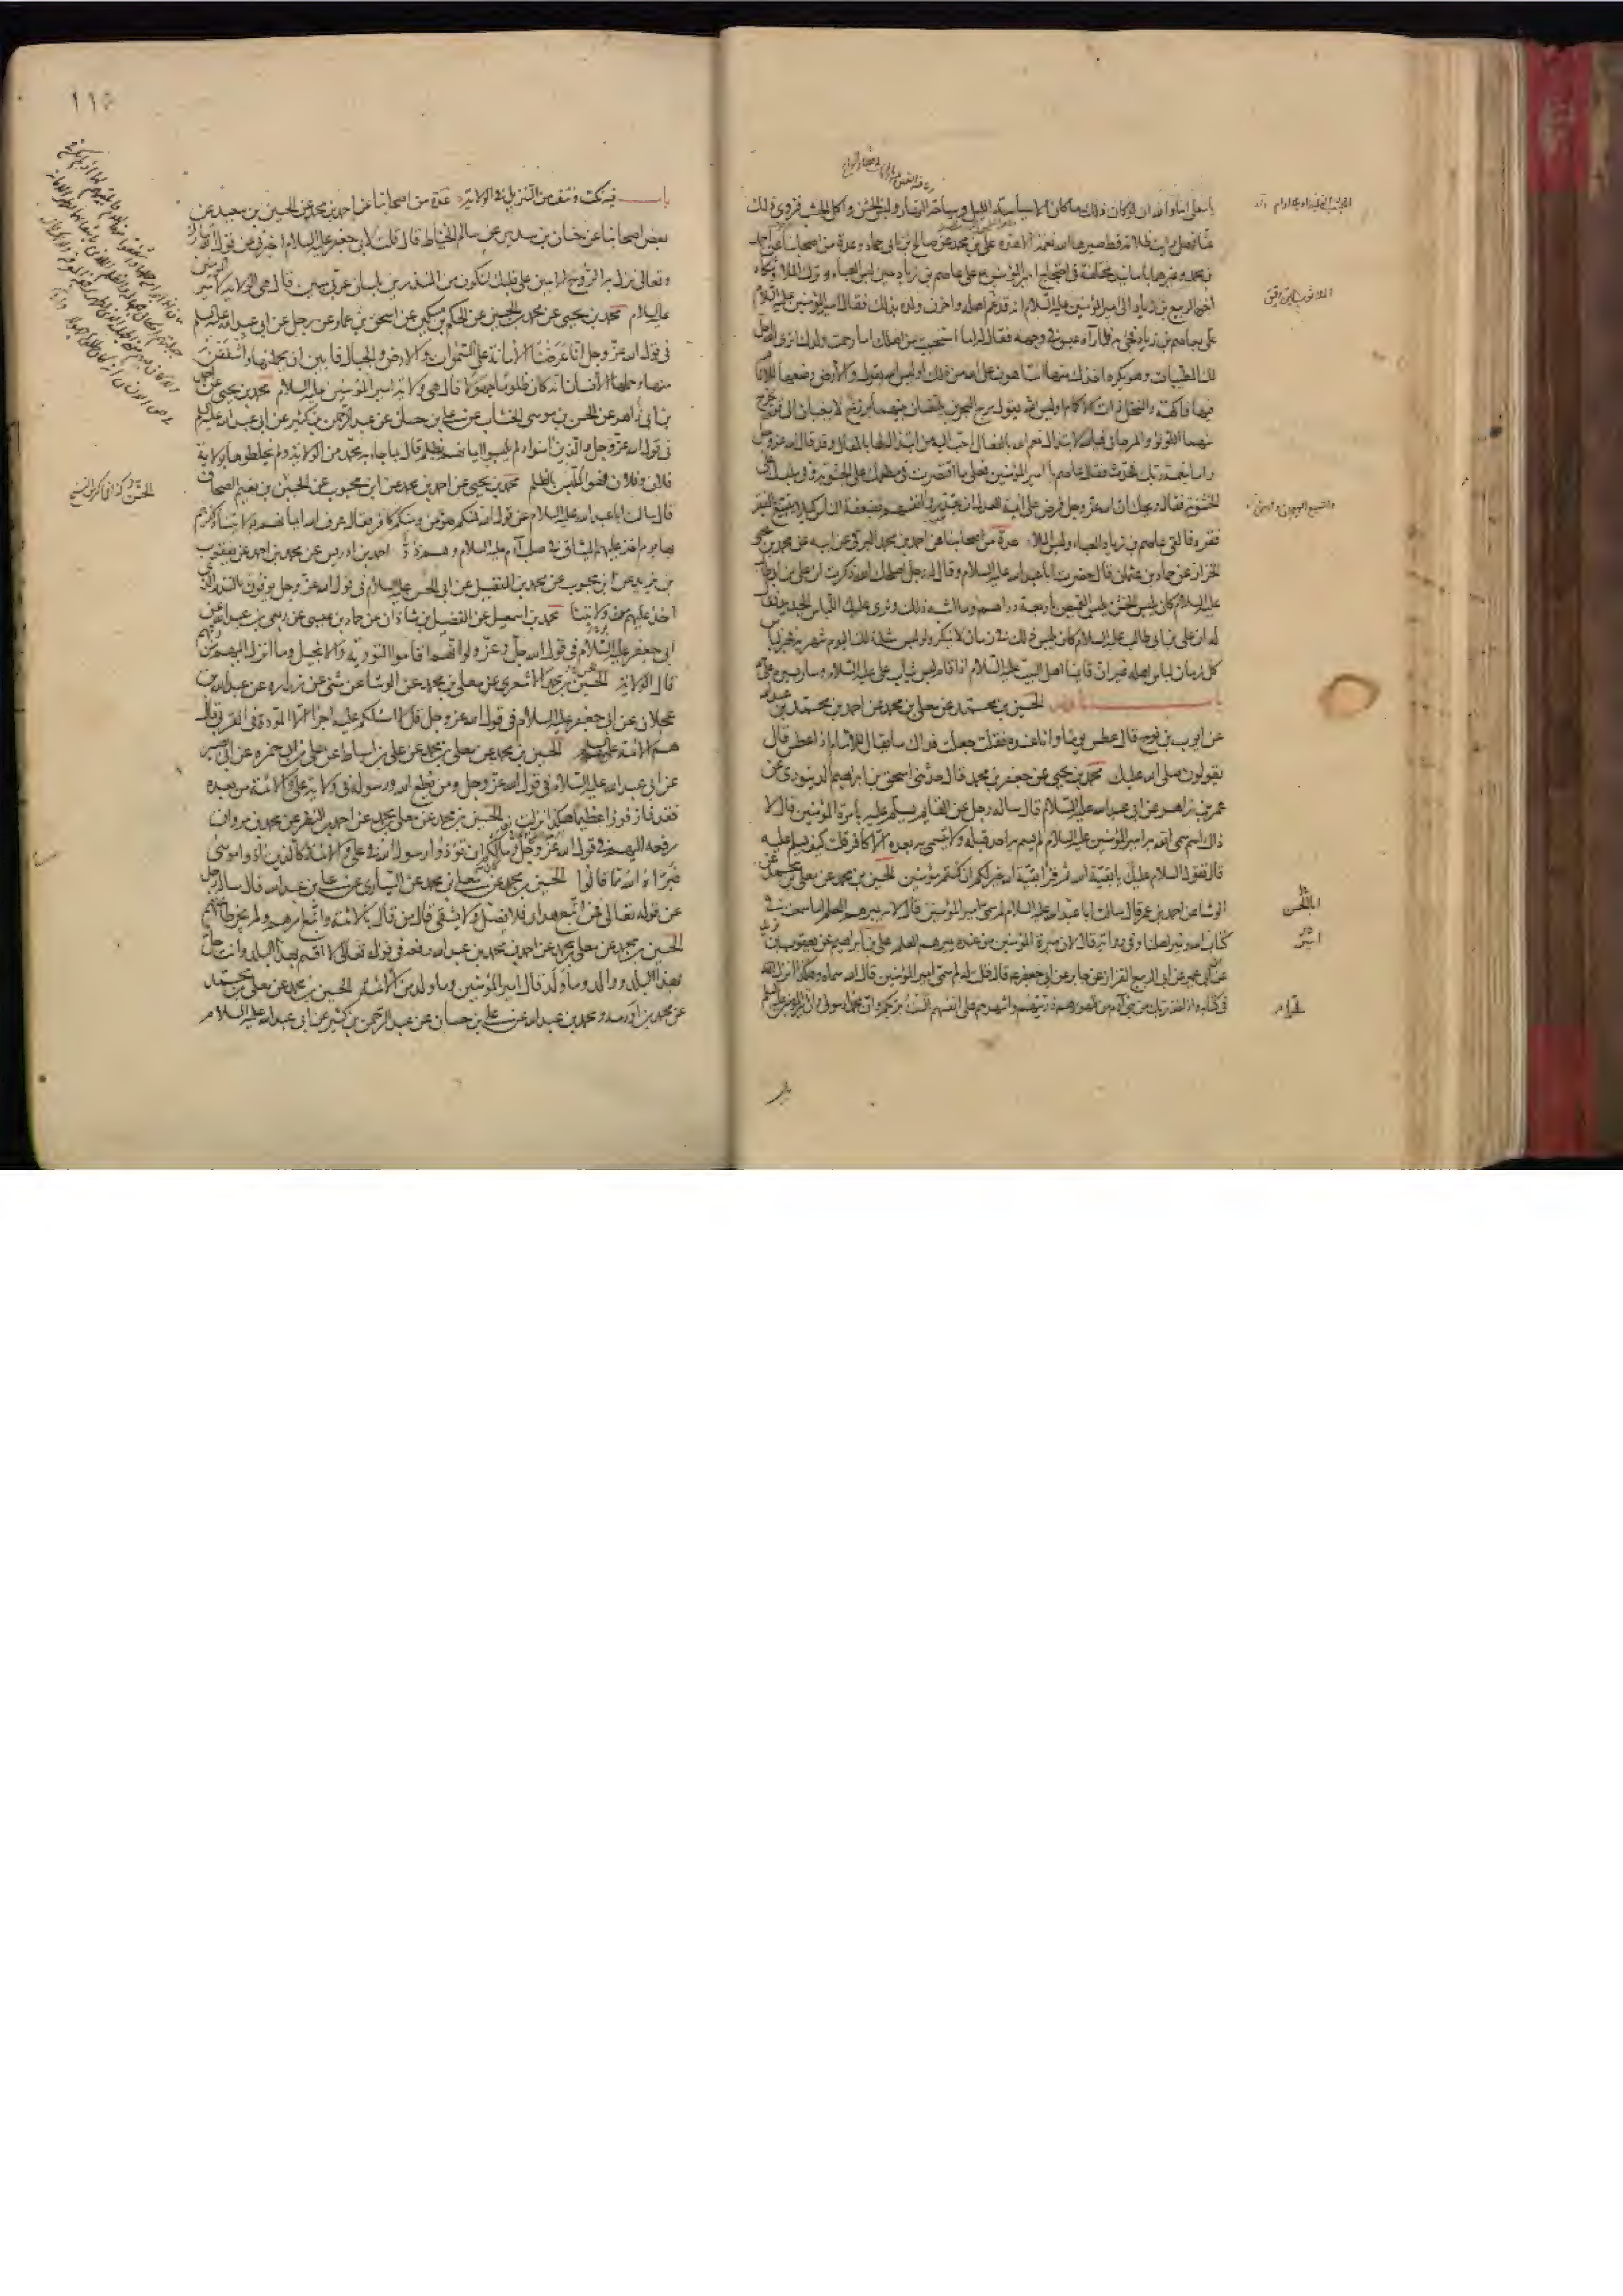 يا معلى اما والله ان لو كان ذلك ما كان الا سياسة الليل وسياحة النهار ولبس الخشن واكل الجشب فزوى ذلك
عنا فهل رايت ظلامة قط صيرها الله نعمة الا هذه علي بن محمد عن صالح بن ابي حماد وعدة من اصحابنا عن احمد
بن محمد وغيرهما باسانيد مختلفة في احتجاج امير المؤمنين ع على عاصم بن زياد حين لبس العباء وترك الملاء وشكاه
اخوه الربيع بن زياد الى امير المؤمنين عليه السلام انه قد غم اهله واحزن ولده بذلك فقال امير المؤمنين عليه السلام
علي بعاصم بن زياد فجيء به فلما رآه عبس في وجهه فقال له اما استحييت من اهلك اما رحمت ولدك اترى الله احل
لك الطيبات وهو يكره اخذك منها انت اهون على الله من ذلك اوليس الله يقول والارض وضعها للانام
فيها فاكهة والنخل ذات الاكمام اوليس الله يقول مرج البحرين يلتقيان بينهما برزخ لا يبغيان الى قوله يخرج
منهما اللؤلؤ والمرجان فبالله لابتذال نعم الله بالفعال احب اليه من ابتذالها بالمقال وقد قال الله عز وجل
واما بنعمة ربك فحدث فقال عاصم يا امير المؤمنين فعلى ما اقتصرت في مطعمك على الجشوبة وفي ملبسك على
الخشونة فقال ويحك ان الله عز وجل فرض على ائمة العدل ان يقدروا انفسهم بضعفة الناس كيلا يتبيغ بالفقير
فقره فالقى عاصم بن زياد العباء ولبس الملاء عدة من اصحابنا عن احمد بن محمد البرقي عن ابيه عن محمد بن يحيى
الخزاز عن حماد بن عثمان قال حضرت ابا عبد الله عليه السلام وقال له رجل اصلحك الله ذكرت ان علي بن ابي طالب
عليه السلام كان يلبس الخشن يلبس القميص باربعة دراهم وما اشبه ذلك ونرى عليك اللباس الجديد فقال
له ان علي بن ابي طالب عليه السلام كان يلبس ذلك في زمان لا ينكر ولو لبس مثل ذلك اليوم شهر به فخير لباس
كل زمان لباس اهله غير ان قائمنا اهل البيت عليه السلام اذا قام لبس ثياب علي عليه السلام وسار بسيرة علي ع
باب نادر الحسين بن محمد عن معلى بن محمد عن احمد بن محمد بن عبد الله
عن ايوب بن نوح قال عطس يوما وانا عنده فقلت جعلت فداك ما يقال للامام اذا عطس قال
يقولون صلى الله عليك محمد بن يحيى عن جعفر بن محمد قال حدثني اسحق بن ابراهيم الدينوري عن
عمر بن زاهر عن ابي عبد الله عليه السلام قال ساله رجل عن القائم يسلم عليه بامرة المؤمنين قال لا
ذاك اسم سمى الله به امير المؤمنين عليه السلام لم يسم به احد قبله ولا يتسمى به بعده الا كافر قلت كيف يسلم عليه
قال تقول السلام عليك يا بقية الله ثم قرأ بقية الله خير لكم ان كنتم مؤمنين الحسين بن محمد عن معلى بن محمد عن
الوشا عن احمد بن عمر قال سالت ابا عبد الله عليه السلام لم سمي امير المؤمنين قال لانه يميرهم العلم اما سمعت في
كتاب الله ونمير اهلنا وفي رواية قال لان ميرة المؤمنين من عنده يميرهم العلم علي بن ابراهيم عن يعقوب بن يزيد
عن ابن ابي عمير عن ابي الربيع القزاز عن جابر عن ابي جعفر ع قال قلت له لم سمي امير المؤمنين قال الله سماه وهكذا انزل الله
في كتابه واذ اخذ ربك من بني آدم من ظهورهم ذريتهم واشهدهم على انفسهم الست بربكم وان محمدا رسولي وان عليا امير المؤمنين
ابا الحسن
١١٥
باب فيه نكت ونتف من التنزيل في الولاية عدة من اصحابنا عن احمد بن محمد عن الحسين بن سعيد عن
بعض اصحابنا عن حنان بن سدير عن سالم الحناط قال قلت لابي جعفر عليه السلام اخبرني عن قول الله تبارك
وتعالى نزل به الروح الامين على قلبك لتكون من المنذرين بلسان عربي مبين قال هي الولاية لامير المؤمنين
عليه السلام محمد بن يحيى عن محمد بن الحسين عن الحكم بن مسكين عن اسحق بن عمار عن رجل عن ابي عبد الله عليه السلم
في قول الله عز وجل انا عرضنا الامانة على السموات والارض والجبال فابين ان يحملنها واشفقن
منها وحملها الانسان انه كان ظلوما جهولا قال هي ولاية امير المؤمنين عليه السلام محمد بن يحيى عن احمد
بن ابي زاهر عن الحسن بن موسى الخشاب عن علي بن حسان عن عبد الرحمن بن كثير عن ابي عبد الله عليه السلم
في قول الله عز وجل الذين امنوا ولم يلبسوا ايمانهم بظلم قال بما جاء به محمد من الولاية ولم يخلطوها بولاية
فلان وفلان فهو الملبس بالظلم محمد بن يحيى عن احمد بن محمد عن ابن محبوب عن الحسين بن نعيم الصحاف
قال سالت ابا عبد الله عليه السلام عن قول الله فمنكم مؤمن ومنكم كافر فقال عرف الله ايمانهم بولايتنا وكفرهم
بها يوم اخذ عليهم الميثاق في صلب آدم عليه السلام وهم ذر احمد بن ادريس عن محمد بن احمد عن يعقوب
بن يزيد عن ابن محبوب عن محمد بن الفضيل عن ابي الحسن عليه السلام في قول الله عز وجل يوفون بالنذر الذي
اخذ عليهم من ولايتنا محمد بن اسمعيل عن الفضل بن شاذان عن حماد بن عيسى عن ربعي بن عبد الله عن
ابي جعفر عليه السلام في قول الله جل وعز ولو انهم اقاموا التورية والانجيل وما انزل اليهم من ربهم
قال الولاية الحسين بن محمد الاشعري عن معلى بن محمد عن الوشا عن مثنى عن زرارة عن عبد الله بن
عجلان عن ابي جعفر عليه السلام في قول الله عز وجل قل لا اسئلكم عليه اجرا الا المودة في القربى قال
هم الائمة عليهم السلم الحسين بن محمد عن معلى بن محمد عن علي بن اسباط عن علي بن ابي حمزه عن ابي بصير
عن ابي عبد الله عليه السلام في قول الله عز وجل ومن يطع الله ورسوله في ولاية علي والائمة من بعده
فقد فاز فوزا عظيما هكذا نزلت الحسين بن محمد عن معلى بن محمد عن احمد بن النضر عن محمد بن مروان
رفعه اليهم في قول الله عز وجل وما كان لكم ان تؤذوا رسول الله في علي والائمة كالذين اذوا موسى
فبرأه الله مما قالوا الحسين بن محمد عن معلى بن محمد عن السياري عن علي بن عبد الله قال ساله رجل
عن قوله تعالى فمن اتبع هداي فلا يضل ولا يشقى قال من قال بالائمة واتبع امرهم ولم يجز طاعتهم
الحسين بن محمد عن معلى بن محمد عن احمد بن محمد بن عبد الله رفعه في قوله تعالى لا اقسم بهذا البلد وانت حل
بهذا البلد ووالد وما ولد قال امير المؤمنين وما ولد من الائمة ع الحسين بن محمد عن معلى بن محمد
عن محمد بن اورمه ومحمد بن عبد الله عن علي بن حسان عن عبد الرحمن بن كثير عن ابي عبد الله عليه السلام